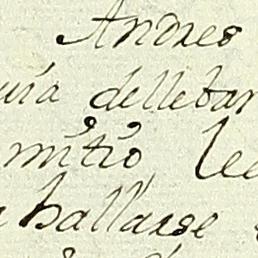 Andres
uia dellebar
mitio, lee
hallarse